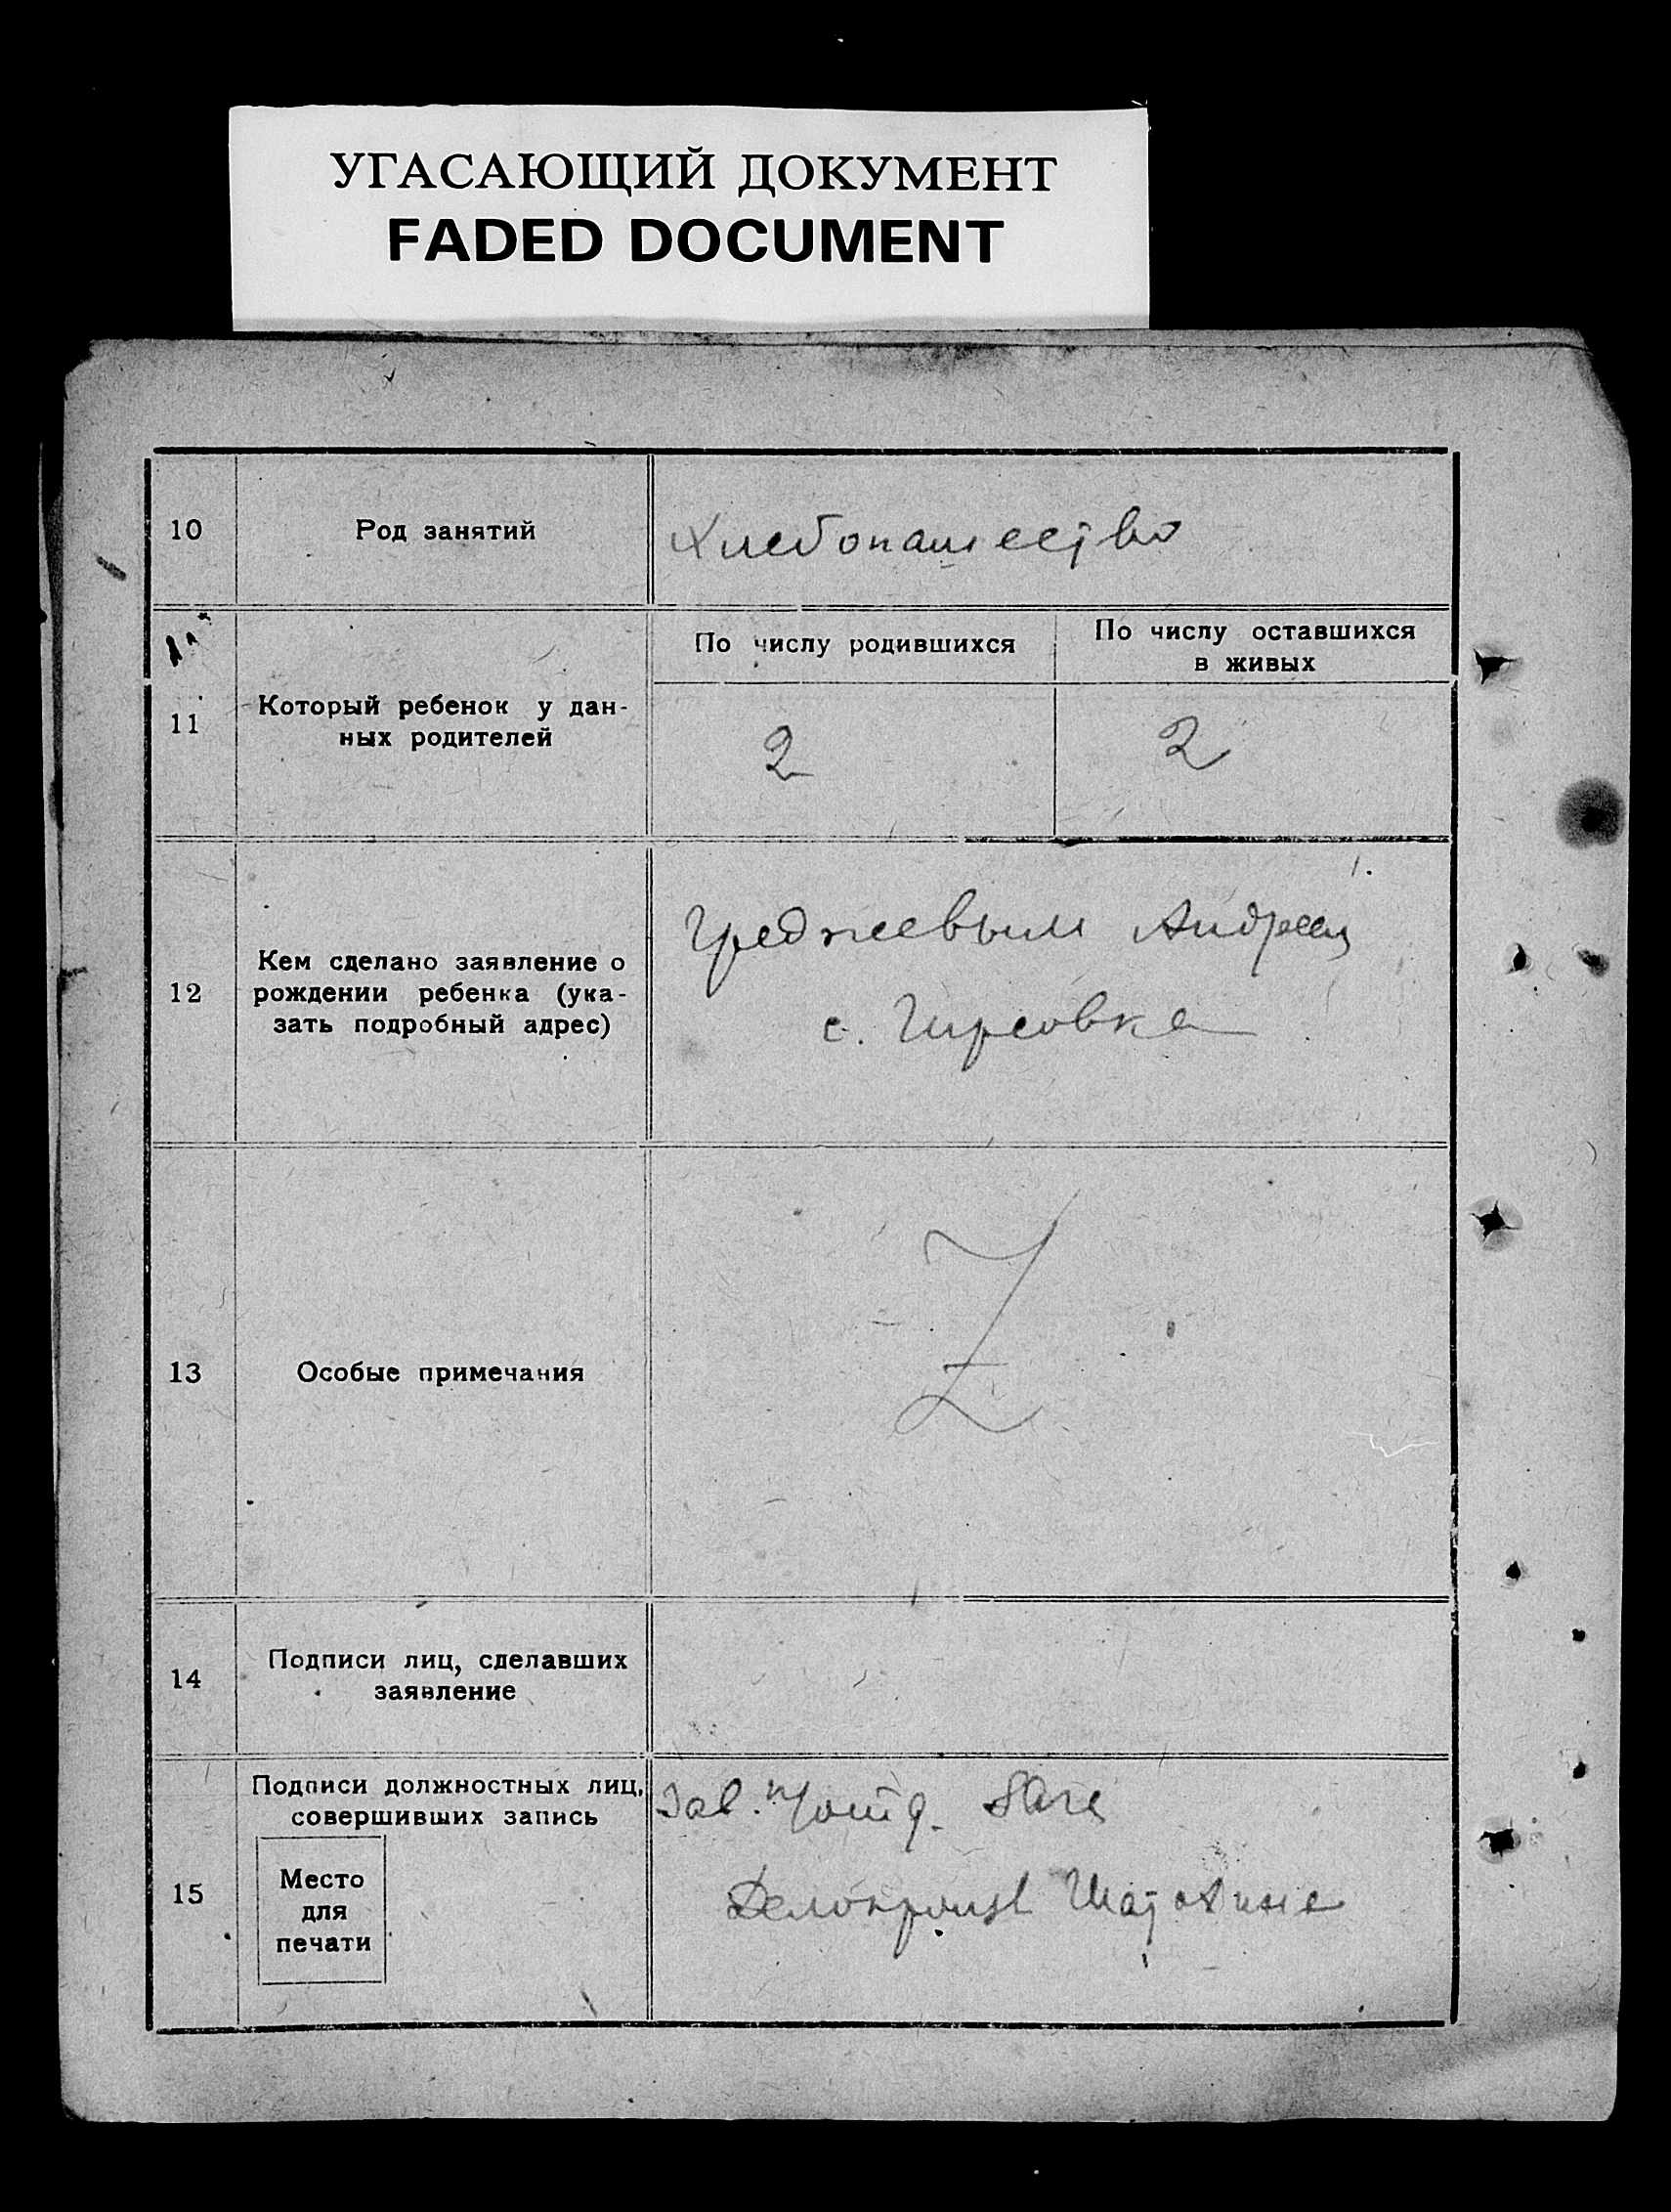 УГАСАЮЩИЙ ДОКУМЕНТ
FADED DOCUMENT
10 Род занятий Хлебопашество
11 Который ребенок у дан-
ных родителей
По числу родившихся
По числу оставшихся
в живых
2 2
12 Кем сделано заявление о
рождении ребенка (ука-
зать подробный адрес)
Андреем
с.
13 Особые примечания
Z
14 Подписи лиц, сделавших
заявление
15 Подписи должностных лиц,
совершивших запись
Место
для
печати
Зав.
Делопроизв